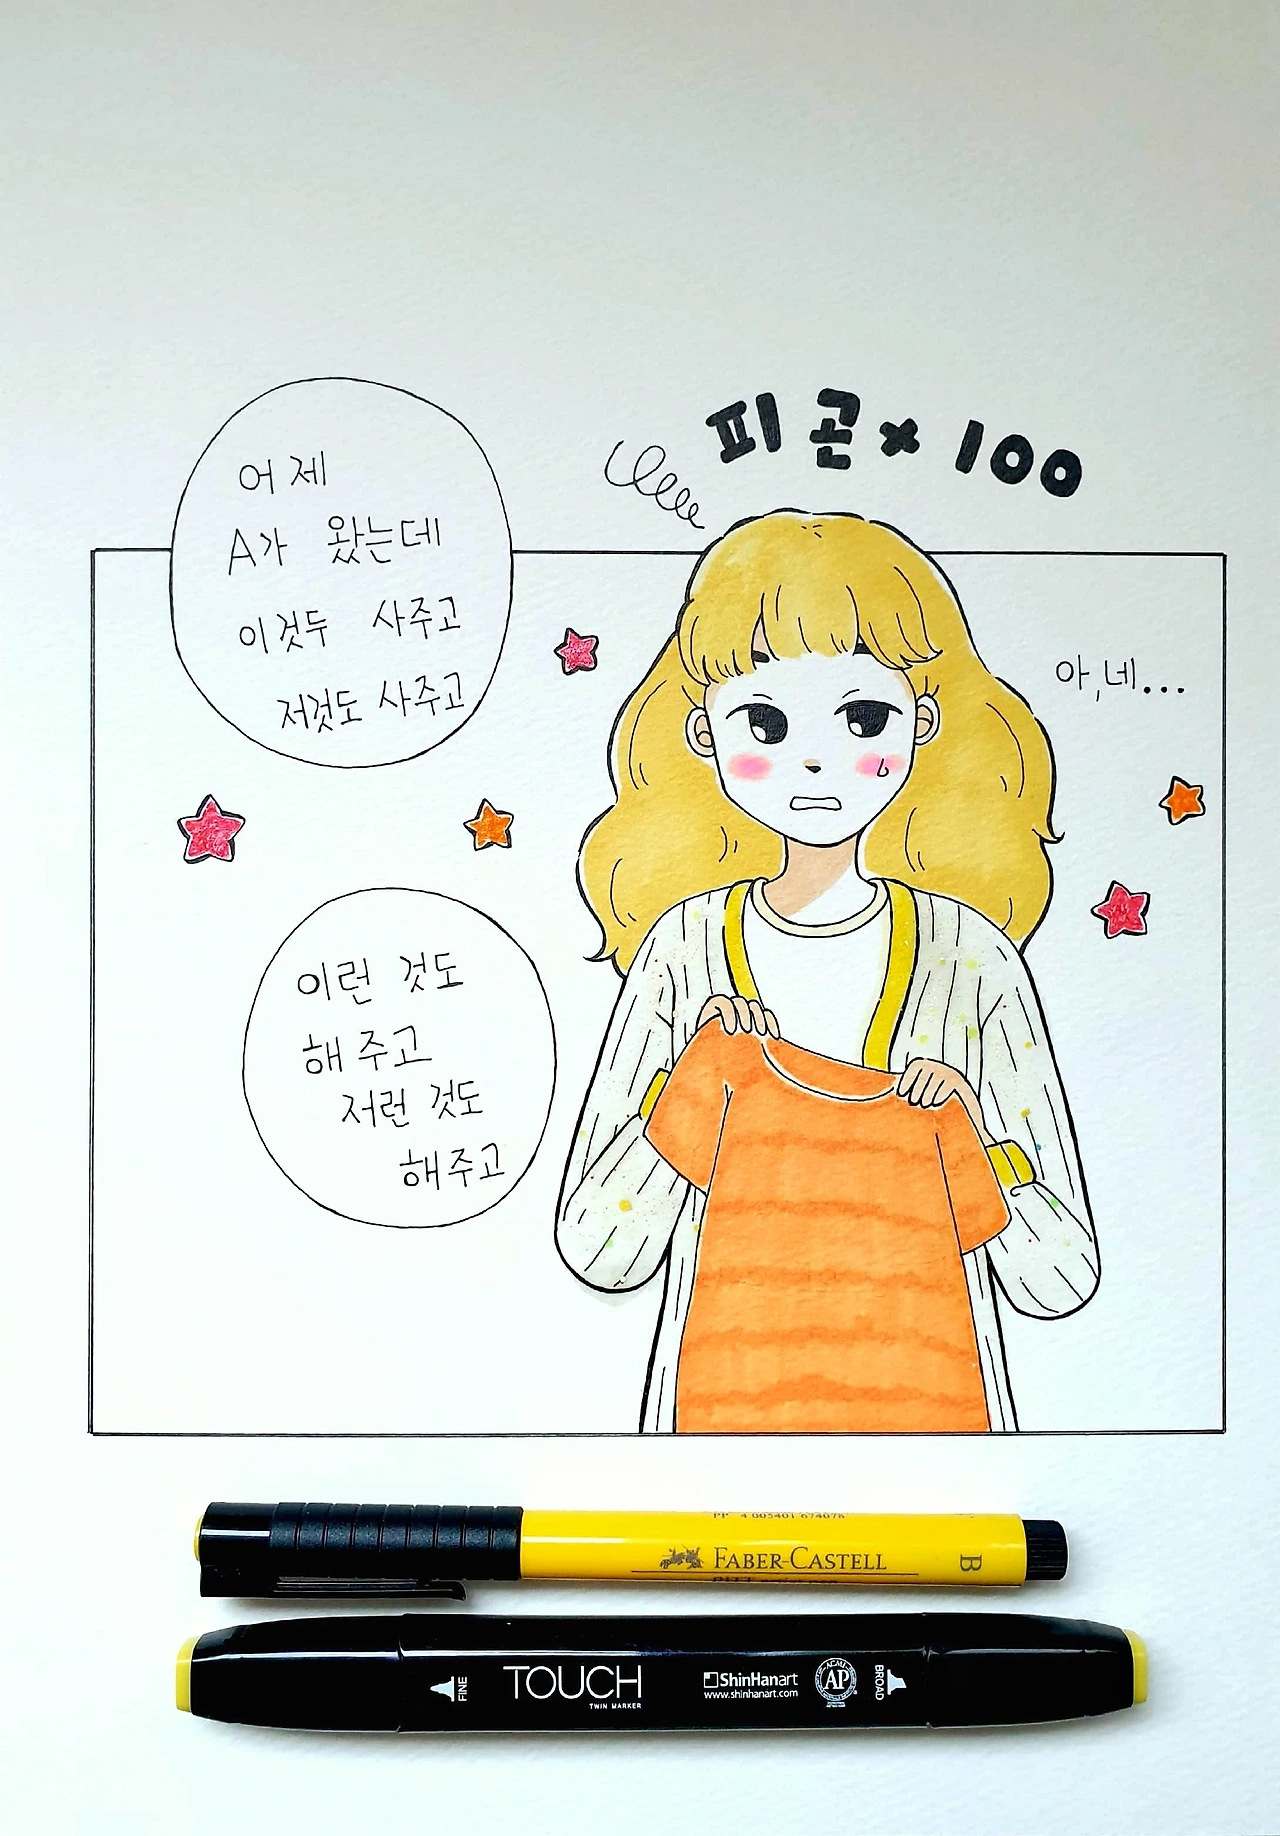 피곤×100
어제
A가 왔는데
이것두 사주고
저것도 사주고
아,네...
이런 것도
해주고
저런 것도
해주고
PP 4 005401 674078
FABER-CASTELL
B
FINE
TOUCH
TWIN MARKER
ShinHanart
www.shinhanart.com
ACMI
AP
BROAD